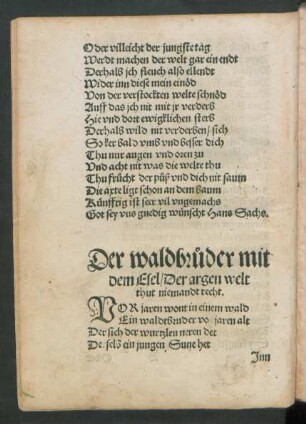 Oder villeicht der jungste tag
Werdt machen der welt gar ein endt
Derhalb jch fleuch also ellendt
Wider inn diese mein einöd
Von der verstockten welte schnöd
Auff das jch nit mit jr verderb
Hie vnd dort ewigklichen sterb
Derhalb wild nit verderben / sich
So ker bald vmb vnd besser dich
Thu nur augen vnd oren zu
Vnd acht nit was die welte thu
Thu frücht der püß vnd dich nit saum
Die axte ligt schon an dem baum
Künfftig ist seer vil vngemachs
Got sey vns gnedig wünscht Hans Sachs.
Der waldbrüder mit
dem Esel / Der argen welt
thut niemandt recht.
VOR jaren wont in einem wald
Ein waldtbruder vo jaren alt
Der sich der wurtzlen neren det
De selb ein jungen Sune het
Inn